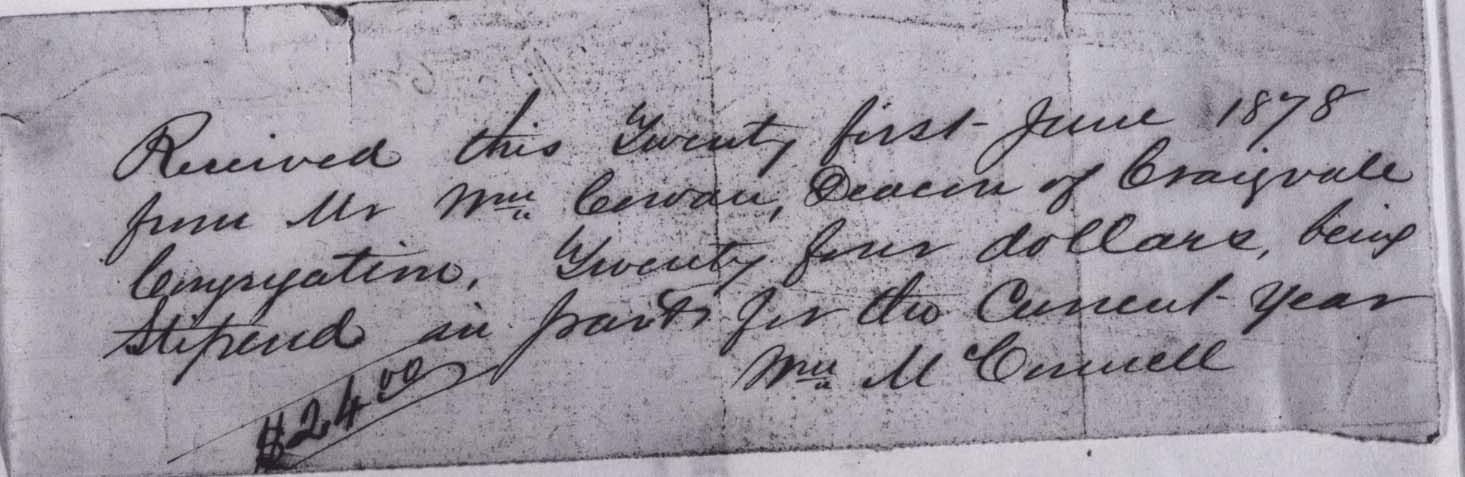 Received this Twenty first June 1878
from Mr Wm Cowan, Deacon of Craigvale
Congregation, Twenty four dollars, being
Stipend in part for the Current Year
Wm McConnell
$24.00